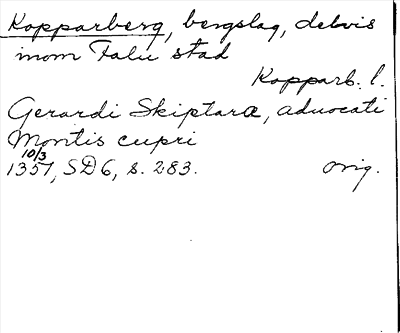 Kopparberg, bergslag, delvis
inom Falu stad
Kopparb. l.
Gerardi Skiptara, aduocati
Montis cupri
10/3
1357, SD6, s. 283. orig.